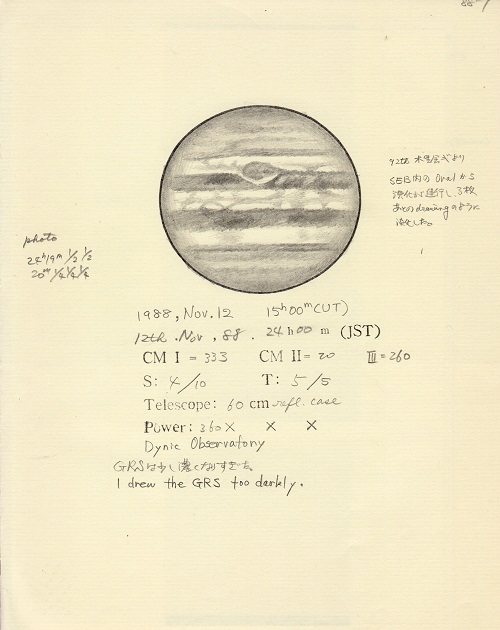 88-
12th 木星会議より
SEB内の Ovalから
淡化が進行し 3枚
あとのdrawingのように
淡化した。
photo
24h19m 1/2 1/2
20m 1/4 1/4 1/4
1988, Nov. 12 15h00m (UT)
12th. Nov, 88. 24h00m (JST)
CM I = 333 CM II = 20 III = 260
S: 4/10 T: 5/5
Telescope: 60 cm refl. case
Power: 360× × ×
Dynic Observatory
GRSは少し濃くなりすぎた。
I drew the GRS too darkly.